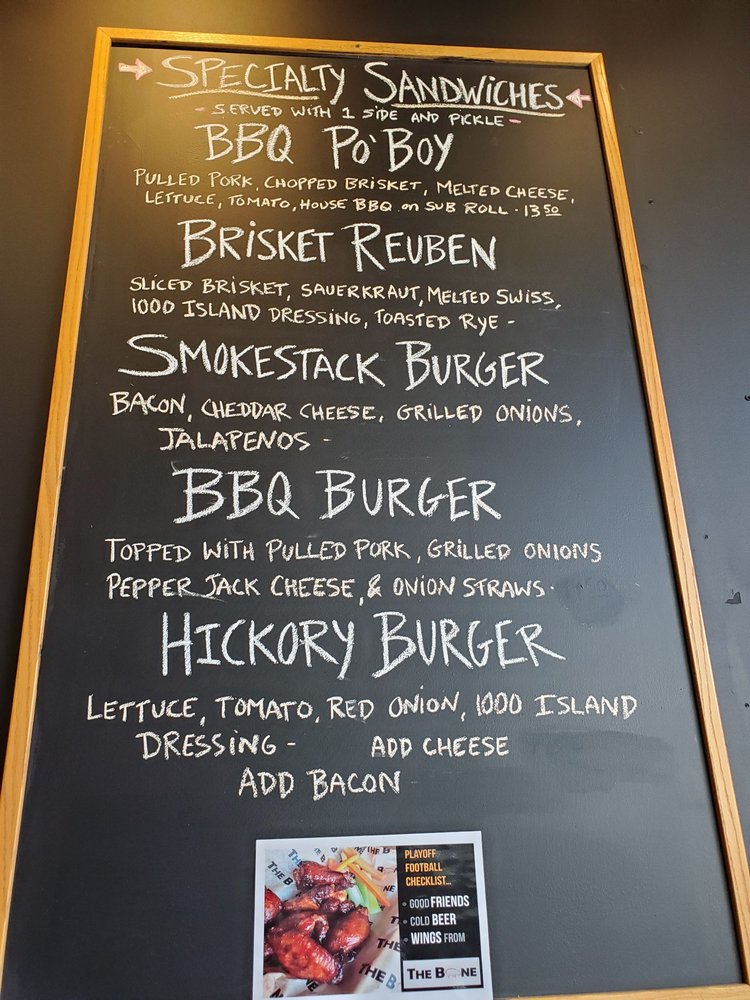 SPECIALTY SANDWICHES
- SERVED WITH 1 SIDE AND PICKLE -
BBQ PO'BOY
PULLED PORK, CHOPPED BRISKET, MELTED CHEESE,
LETTUCE, TOMATO, HOUSE BBQ on SUB ROLL - 13 50
BRISKET REUBEN
SLICED BRISKET, SAUERKRAUT, MELTED SWISS,
1000 ISLAND DRESSING, TOASTED RYE -
SMOKESTACK BURGER
BACON, CHEDDAR CHEESE, GRILLED ONIONS,
JALAPENOS -
BBQ BURGER
TOPPED WITH PULLED PORK, GRILLED ONIONS
PEPPER JACK CHEESE, & ONION STRAWS -
HICKORY BURGER
LETTUCE, TOMATO, RED ONION, 1000 ISLAND
DRESSING - ADD CHEESE
ADD BACON
PLAYOFF
FOOTBALL
CHECKLIST...
• GOOD FRIENDS
• COLD BEER
• WINGS FROM
THE BONE